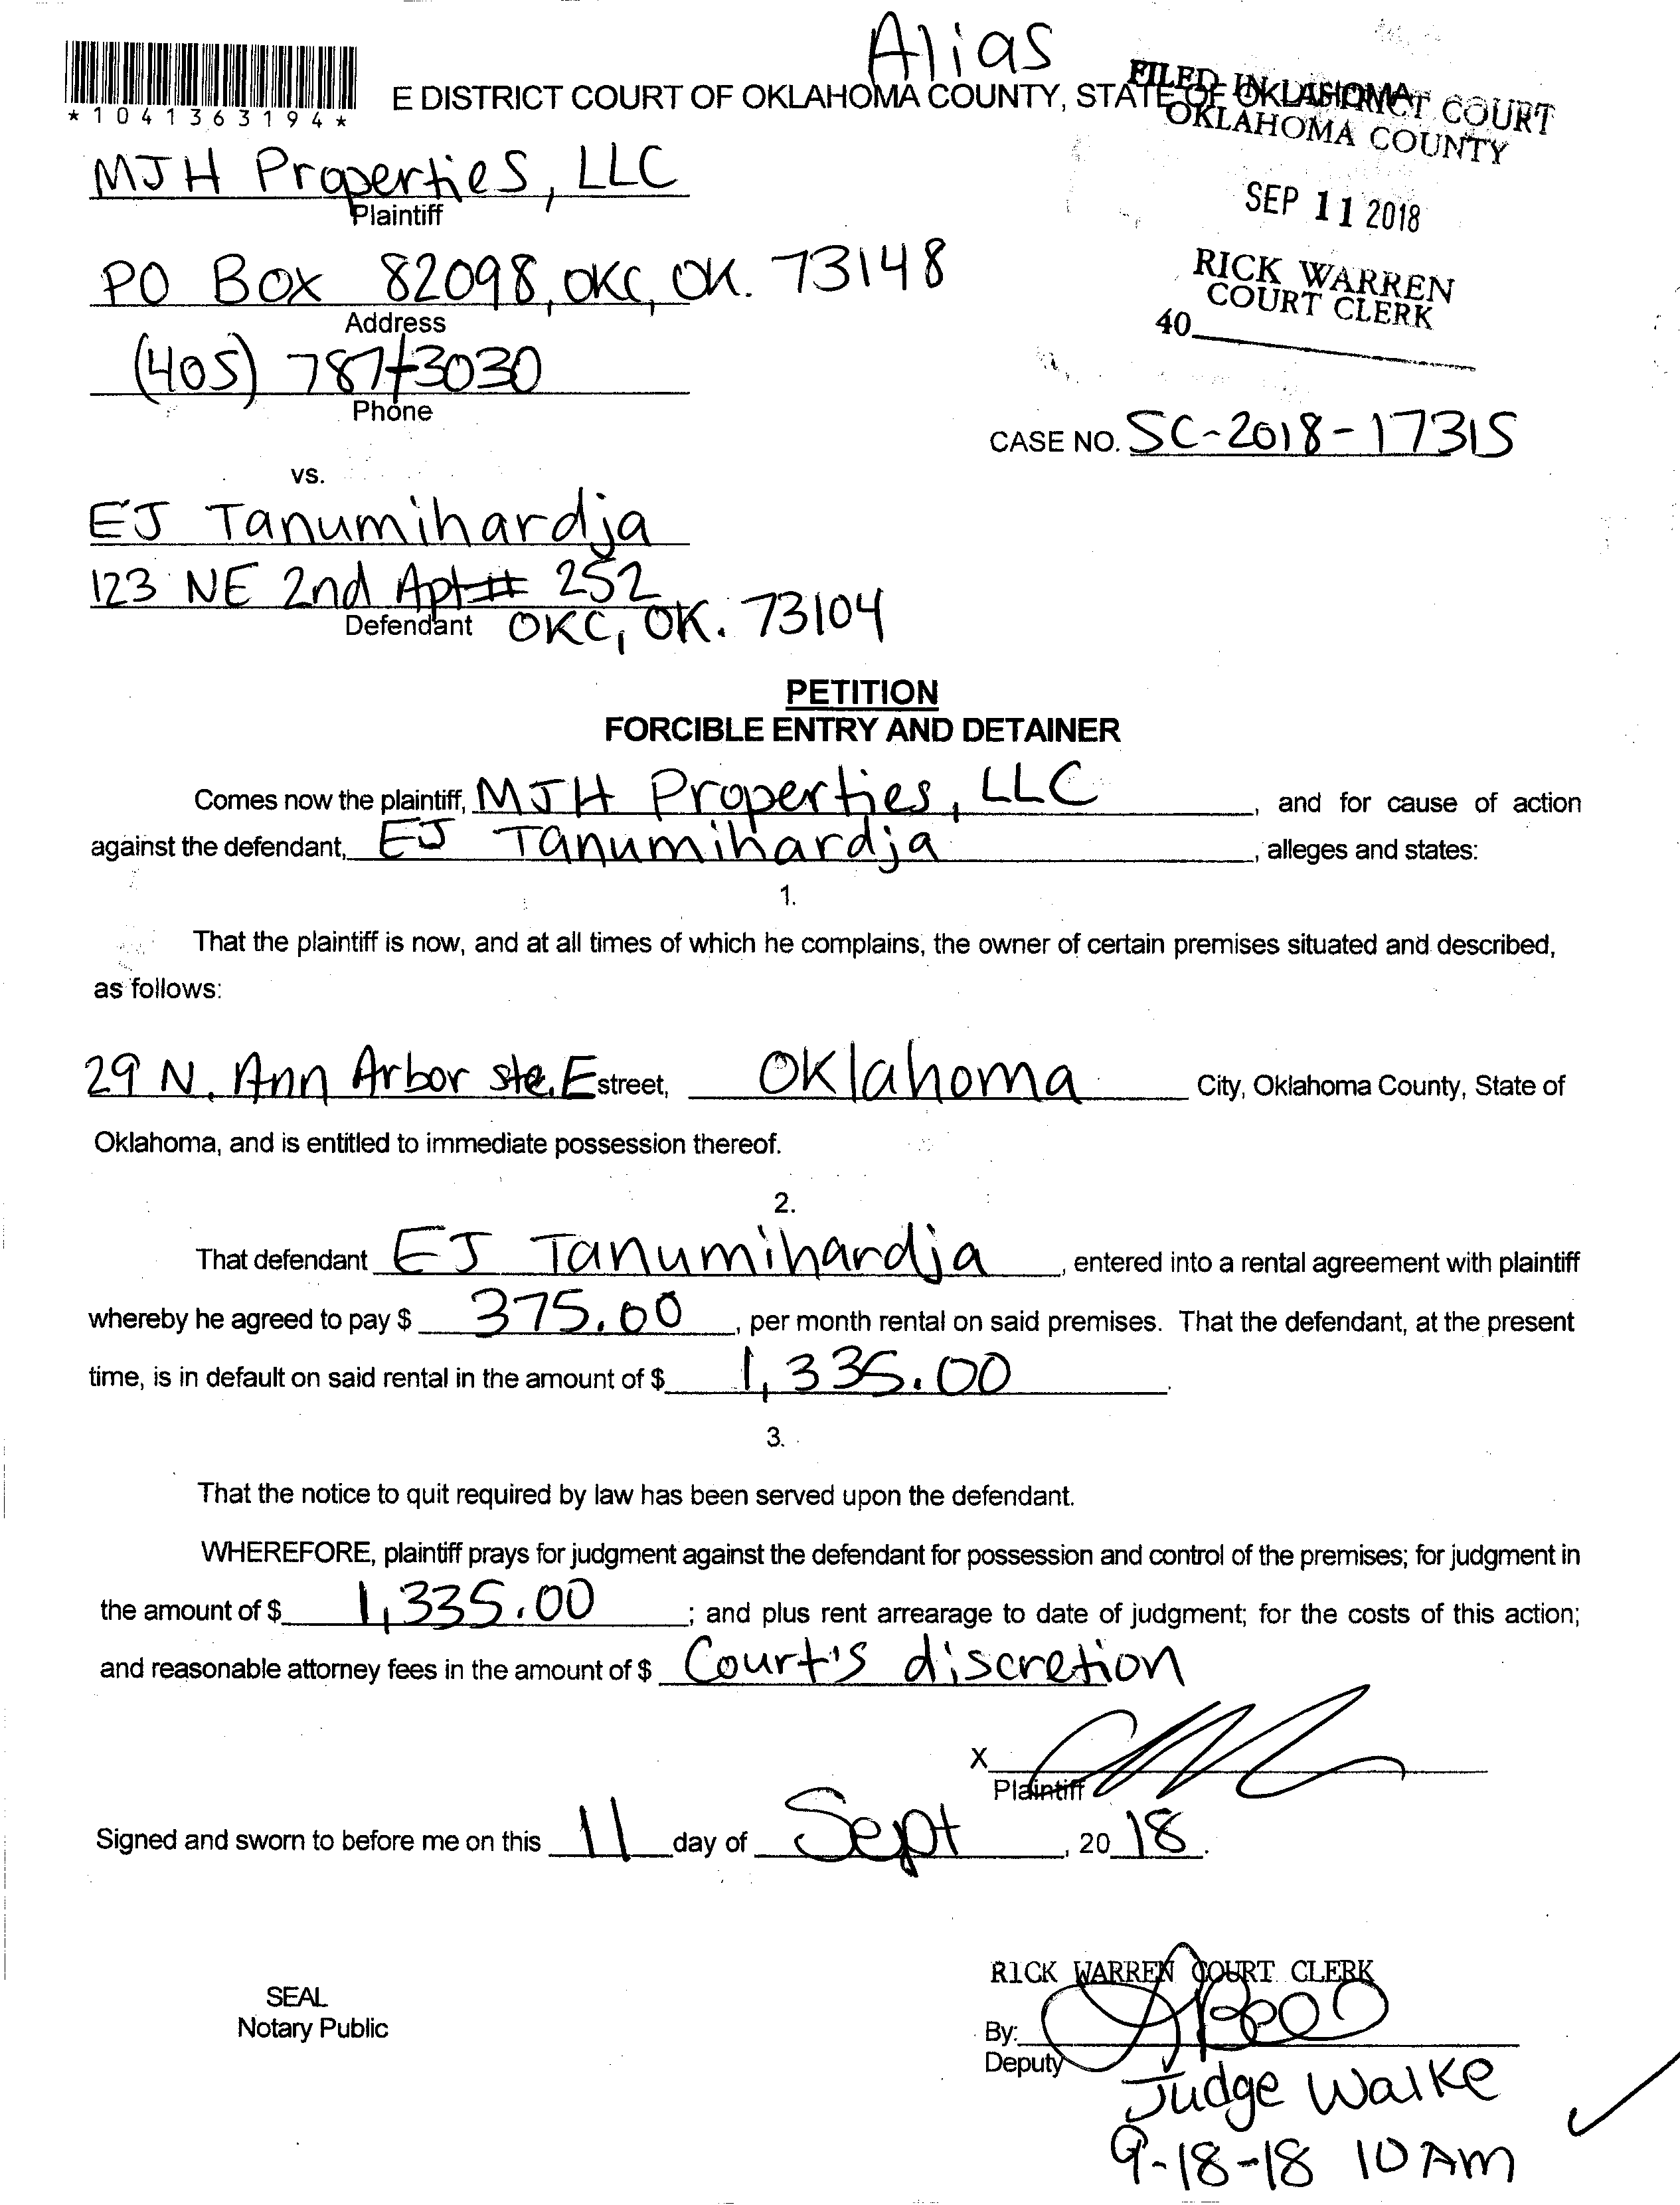 Alias
*1041363194*
E DISTRICT COURT OF OKLAHOMA COUNTY, STATE OF OKLAHOMA
FILED IN DISTRICT COURT
OKLAHOMA COUNTY
MJH Properties, LLC
Plaintiff
SEP 11 2018
PO Box 82098, OKC, OK. 73148
Address
RICK WARREN
COURT CLERK
40
(405) 787-3030
Phone
CASE NO. SC-2018-17315
vs.
EJ Tanumihardja
123 NE 2nd Apt# 252
Defendant OKC, OK. 73104
PETITION
FORCIBLE ENTRY AND DETAINER
Comes now the plaintiff, MJH Properties, LLC, and for cause of action
against the defendant, EJ Tanumihardja, alleges and states:
1.
That the plaintiff is now, and at all times of which he complains, the owner of certain premises situated and described,
as follows:
29 N. Ann Arbor ste. E street, Oklahoma City, Oklahoma County, State of
Oklahoma, and is entitled to immediate possession thereof.
2.
That defendant EJ Tanumihardja, entered into a rental agreement with plaintiff
whereby he agreed to pay $ 375.00, per month rental on said premises. That the defendant, at the present
time, is in default on said rental in the amount of $ 1,335.00.
3.
That the notice to quit required by law has been served upon the defendant.
WHEREFORE, plaintiff prays for judgment against the defendant for possession and control of the premises; for judgment in
the amount of $ 1,335.00; and plus rent arrearage to date of judgment; for the costs of this action;
and reasonable attorney fees in the amount of $ Court's discretion
X
Plaintiff
Signed and sworn to before me on this 11 day of Sept, 20 18.
RICK WARREN COURT CLERK
SEAL
Notary Public
By:
Deputy
Judge Walke
9-18-18 10 AM